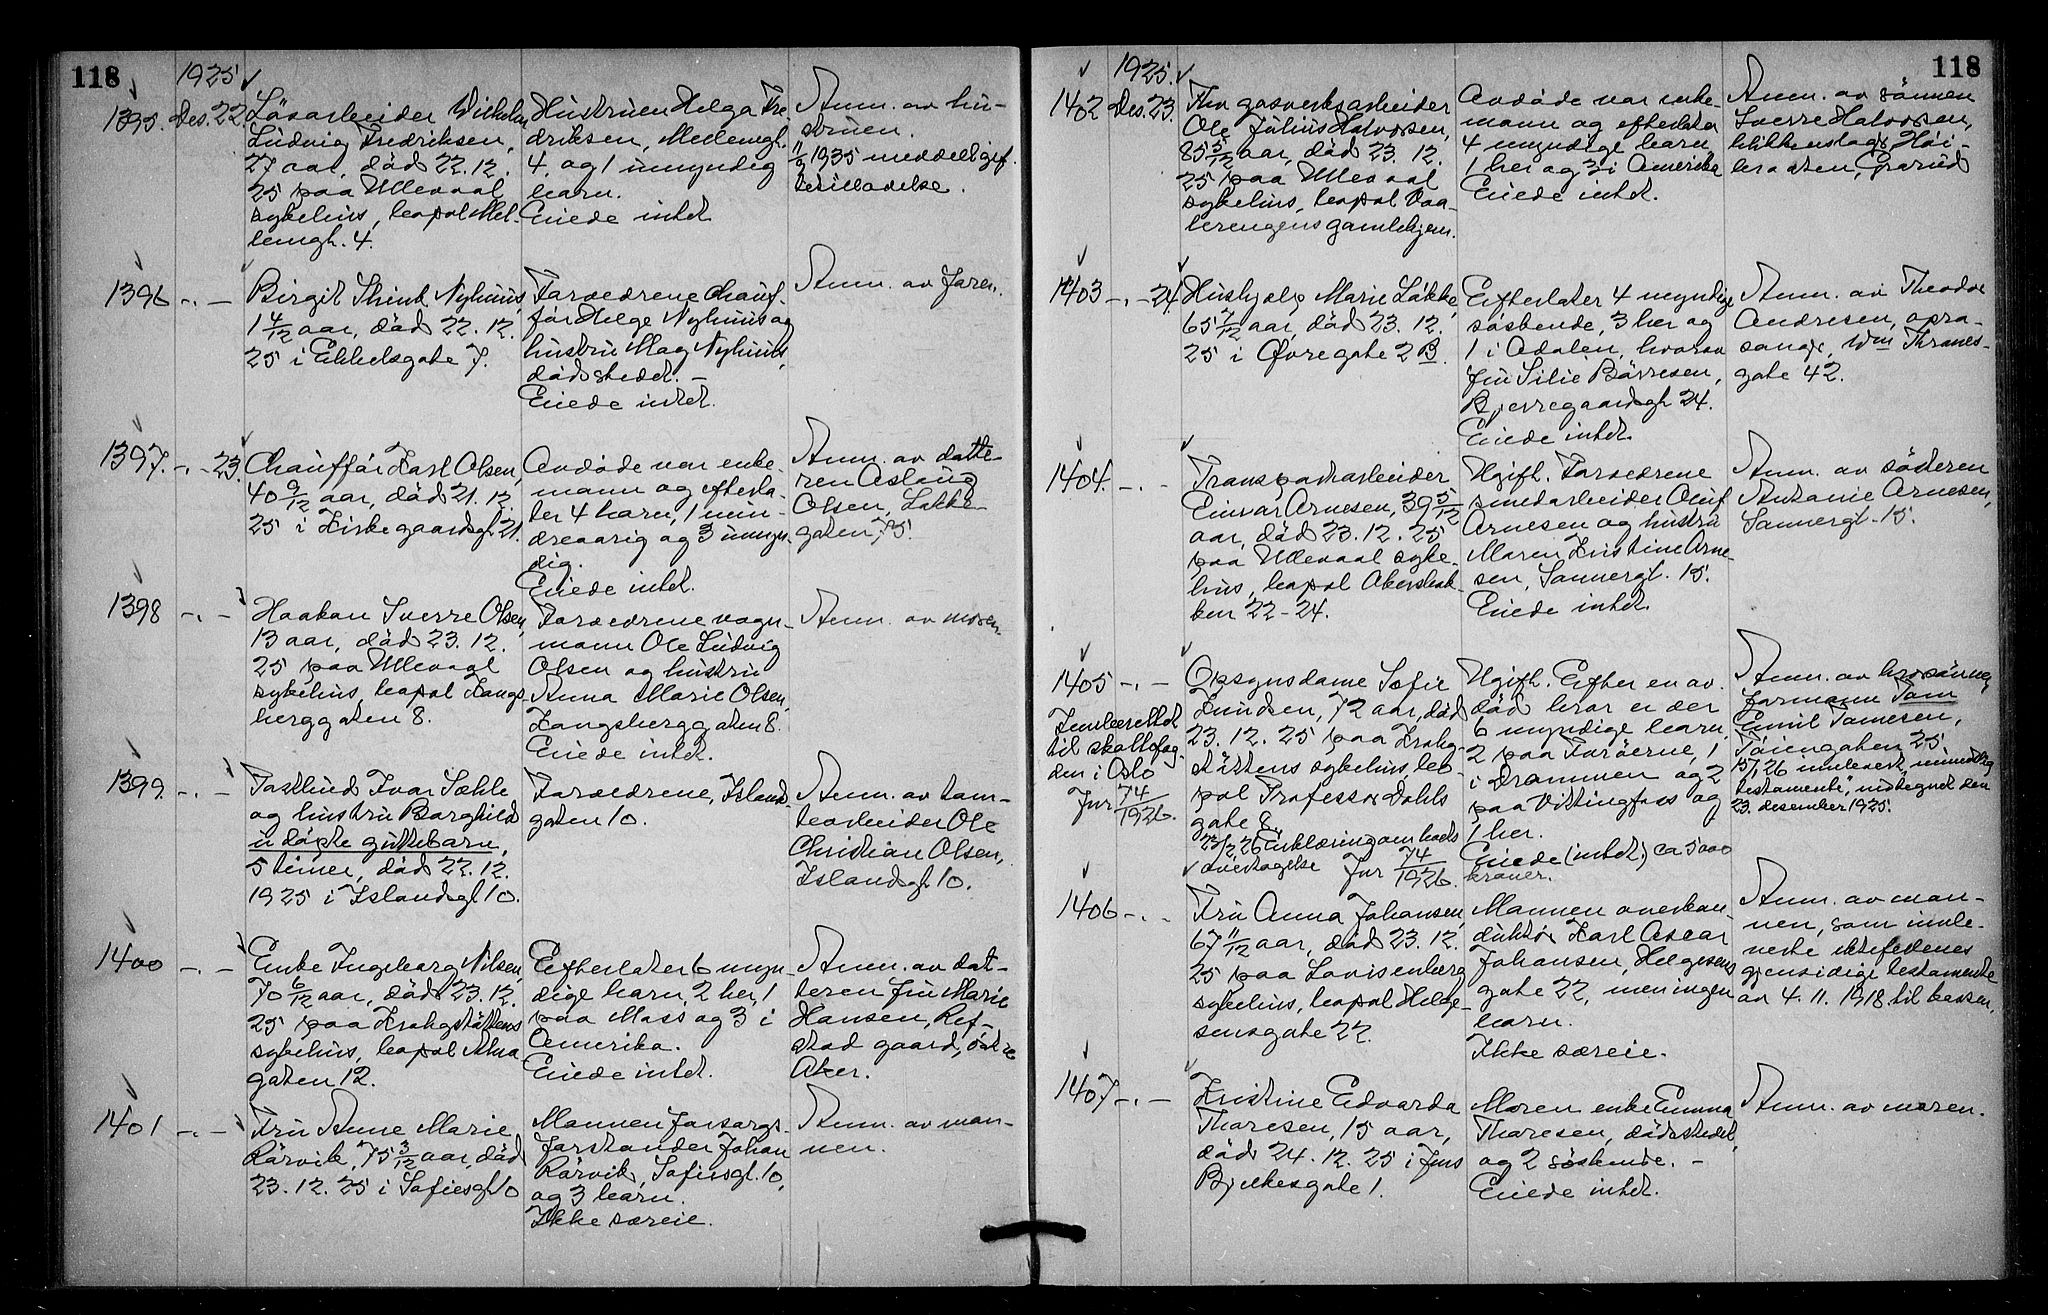 118
1925
1395. Des. 22.
Løsarbeider Wilhelm
Ludvig Fredriksen,
27 aar, død 22.12.
25 paa Ullevaal
sykehus, bopæl Mel-
lemgt. 4.
Hustruen Helga Fre-
driksen, Mellemgt.
4, og 1 umyndig
barn.
Eiede intet
Anm. av hu-
struen.
1935 meddelt gif-
tetilladelse.
1396 -.-
Birgit Nyhuus,
1 4/12 aar, død 22.12.
25 i Eckhelsgate 7.
Forældrene Chauf-
før Helge Nyhuus og
hustru Mag Nyhuus,
dødsstedet. -
Eiede intet.
Anm. av faren.
1397. -.- 23.
Chauffør Karl Olsen,
40 9/12 aar, død 21.12.
25 i Kirkegaardsgt. 21.
Avdøde var enke-
mann og efterla-
ter 4 barn, 1 min-
dreaarig og 3 umyn-
dig.
Eiede intet.
Anm. av datte-
ren Aslaug
Olsen, Løkke-
gaten 75.
1398 -.-
Haakon Sverre Olsen,
13 aar, død 23.12.
25 paa Ullevaal
sykehus, bopæl Kongs-
berggaten 8.
Forældrene vogn-
mann Ole Ludvig
Olsen og hustru
Anna Marie Olsen,
Kongsberggaten 8.
Eiede intet.
Anm. av moren.
1399. -.-
Postbud Ivar Sæhle
og hustru Borghild
udøpte guttebarn,
5 timer, død 22.12.
1925 i Islandsgt. 10.
Forældrene, Islands-
gaten 10.
Anm. av tom-
tearbeider Ole
Christian Olsen,
Islandsgt. 10.
1400 -.-
Enke Ingeborg Nilsen,
70 6/12 aar, død 23.12.
25 paa Krohgstøttens
sykehus, bopæl Alna-
gaten 12.
Efterlater 6 myn-
dige barn, 2 her, 1
paa Moss og 3 i
Amerika.
Eiede intet.
Anm. av dat-
teren fru Marie
Hansen, Ref-
stad gaard, østre
Aker.
1401 -.-
Fru Anne Marie
Rørvik, 75 3/12 aar, død
23.12.25 i Sofiesgt. 10
Mannen forsorgs-
forstander Johan
Rørvik, Sofiesgt. 10,
og 3 barn.
Ikke særeie.
Anm. av man-
nen.
118
1925.
1402 Des. 23.
Fhv. gasverksarbeider
Ole Julius Halvorsen,
85 5/12 aar, død 23.12.
25 paa Ullevaal
sykehus, bopæl Vaa-
lerengens gamlehjem.
Avdøde var enke-
mann og efterlater
4 myndige barn,
1 her og 3 i Amerika
Eiede intet.
Anm. av sønnen
Sverre Halvorsen,
blikkenslager, Høi-
braaten, Grorud
1403 -.- 24.
Hushjælp Marie Løkke,
65 7/12 aar, død 23.12.
25 i Øvregate 2 B.
Efterlater 4 myndige
søskende, 3 her og
1 i Adalen, hvorav
fru Silie Børresen,
Bjerregaardsgt. 24.
Eiede intet.
Anm. av Theodor
Andresen, opra-
sanger, Wm Thranes-
gate 42.
1404. -.-
Transportarbeider
Einar Arnesen, 39 5/12
aar, død 23.12.25
paa Ullevaal syke-
hus, bopæl Akersbak-
ken 22-24.
Ugift. Forældrene
smedarbeider Oluf
Arnesen og hustru
Maren Kristine Arne-
sen, Sannergt. 15.
Eiede intet.
Anm. av søsteren
Antonie Arnesen,
Sannergt. 15.
1405 -.-
Innberettet
til skattefog-
den i Oslo
Jnr 74/1926.
Opsynsdame Sofie
Knudsen, 72 aar, død
23.12.25 paa Krohg-
støttens sykehus, bo-
pæl Professor Dahls
gate 8.
23/2 26 Erklæring om boets
overtagelse Jnr 74/1926.
Ugift. Efter en av-
død bror er der
6 myndige barn,
2 paa Færøerne, 1
i Drammen og 2
paa Vittingfoss og
1 her.
Eiede (intet.) ca 5000
kroner.
Anm. av brorsønnen
formann Tom
Emil Tomesen,
Tøiengaten 25.
15/1 26 innlevert muntlig
testamente, nedtegnet den
23. desember 1925.
1406 -.-
Fru Anna Johansen,
67 11/12 aar, død 23.12.
25 paa Lovisenberg
sykehus, bopæl Helge-
sensgate 22.
Mannen overkon-
duktør Karl Oscar
Johansen, Helgesens
gate 22, men ingen
barn.
Ikke særeie.
Anm. av man-
nen, som innle-
verte ektefellenes
gjensidige testamente
av 4.11.1918 til boken.
1407 -.-
Kristine Edvarda
Thoresen, 15 aar,
død 24.12.25 i Jens
Bjelkesgate 1.
Moren enke Emma
Thoresen, dødsstedet,
og 2 søskende. -
Eiede intet.
Anm. av moren.